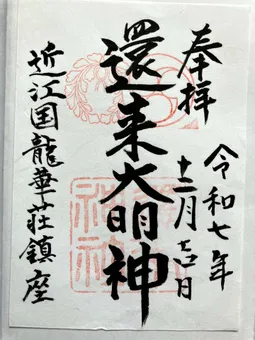 奉拝
令和七年
十二月吉日
還来大明神
近江国龍華荘鎮座